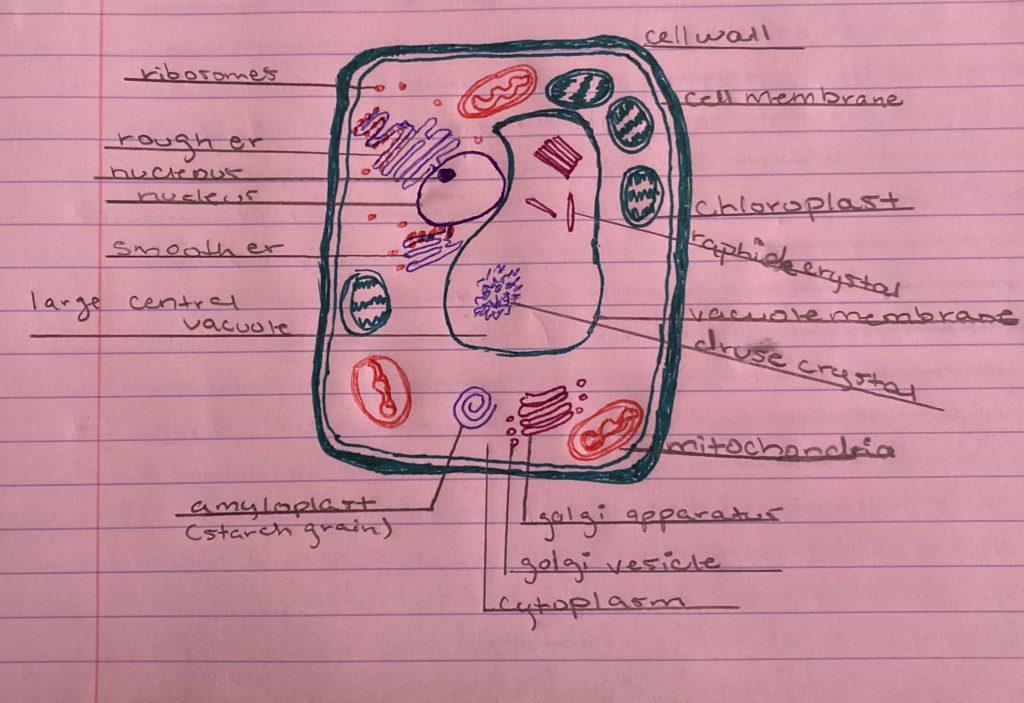 cell wall
ribosomes
cell membrane
rough er
nucleous
nucleus
chloroplast
raphide crystal
smooth er
large central
vacuole
vacuole membrane
druse crystal
mitochondria
amyloplast
(starch grain)
golgi apparatus
golgi vesicle
cytoplasm